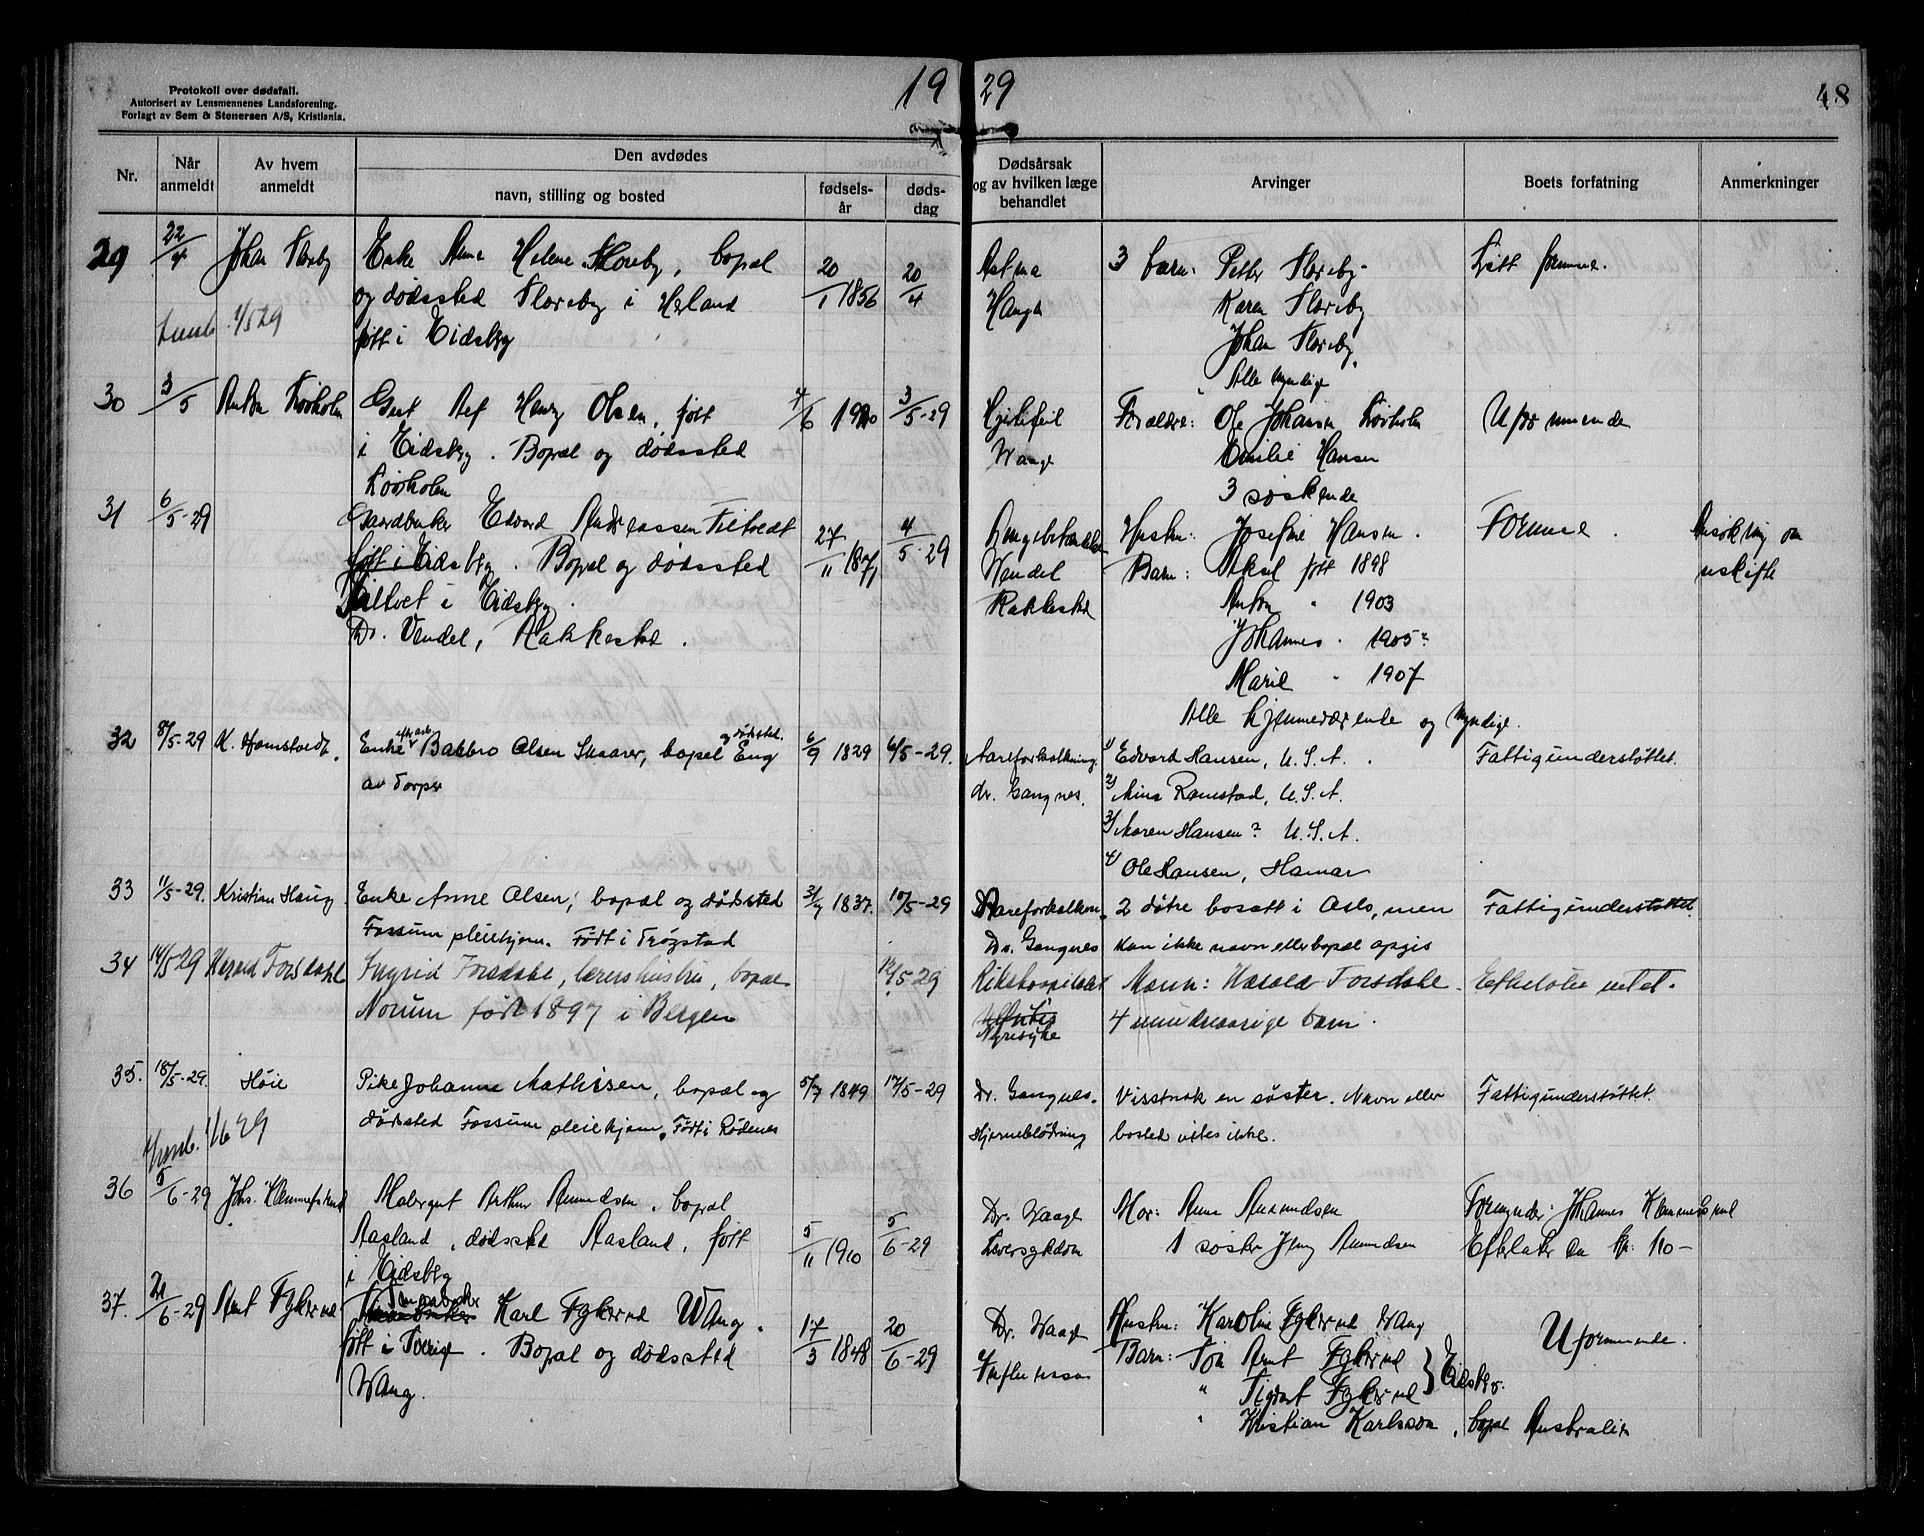 19 29
48
Protokoll over dødsfall.
Autorisert av Lensmennenes Landsforening.
Forlagt av Sem & Stenersen A/S, Kristiania.
Nr.
Når anmeldt
Av hvem anmeldt
Den avdødes
navn, stilling og bosted
fødsels-år
døds-dag
Dødsårsak og av hvilken læge behandlet
Arvinger
Boets forfatning
Anmerkninger
29 22/4 Johan Floreby Enke Anne Helene Floreby, bopæl 20/1 1856 20/4 Astma 3 barn: Petter Floreby Litt formue.
og dødssted Floreby i Herland Haugen Karen Floreby
1/5 29 født i Eidsberg Johan Floreby
Alle myndige
30 3/5 Anton Lövholm Gut Alf Henry Olsen, født 7/6 1920 3/5-29 Hjertefeil Forældre: Ole Johansen Lövholm Uformuende
i Eidsberg. Bopæl og dødssted Waage Emilie Hansen
Lövholm 3 søskende
31 6/5-29 Gaardbruker Edvard Andreassen Tiltvedt 27/11 1871 4/5-29 Lungebetændelse Hustru: Josefine Hansen. Formue.
født i Eidsberg. Bopæl og dødssted Wendel Barn: Aksel født 1898 uskifte
Tiltvet i Eidsberg. Rakkestad Anton " 1903
Dr. Vendel, Rakkestad. Johannes " 1905?
Marie " 1907
Alle hjemmeværende og myndige.
32 8/5-29 K. Homstvedt. Enke Babbro Olsen Skaarer, bopæl og dødssted Eng 6/9 1829 6/5-29. Aareforkalkning. 1) Edvard Hansen, U.S.A. Fattigunderstøttet.
av Torper dr. Gangnes. 2) Mina Ramstad, U.S.A.
3) Maren Hansen? U.S.A.
4) Ole Hansen, Hamar
33 11/5-29. Kristian Haug Enke Anne Olsen; bopæl og dødssted 31/7 1837. 10/5-29 Aareforkalkn. 2 døtre bosatt i Oslo, men Fattigunderstøttet.
Fossum pleiehjem. Født i Trøgstad Dr. Gangnes kan ikke navn eller bopæl opgis
34 14/5 29 Harald Forsdahl Ingrid Forsdahl, lærers hustru, bopæl 12/5-29 Rikshospitalet Mann: Harald Forsdahl.
Norum født 1897 i Bergen Nyresyke 4 mindreaarige barn.
35. 18/5-29. Høie Pike Johanne Mathisen, bopæl og 5/7 1849 17/5-29 Dr. Gangnes. Visstnok en søster. Navn eller Fattigunderstøttet.
1/6 29 dødssted Fossum pleiehjem. Født i Rødenes Hjerneblødning bosted vites ikke.
36 5/6-29 Johs. Malergut Arthur Amundsen, bopæl Dr. Waage Mor: Anna Amundsen Formynder: Johannes
Aasland, dødssted Aasland, født 5/11 1910 5/6-29 Leversykdom 1 søster Jenny Amundsen Efterlater en kr. 110-
i Eidsberg
37. 21/6-29 Arnt Fykerud Karl Fykerud Wang. 17/3 1848 20/6-29 Dr. Waage Hustru: Karoline Fykerud Wang Uformuende.
født i Sverige. Bopæl og dødssted Influensa Barn: Arnt Fykerud } Eidsberg.
Wang. " Sigvart Fykerud
" Kristian Karlsson, bopæl Australien